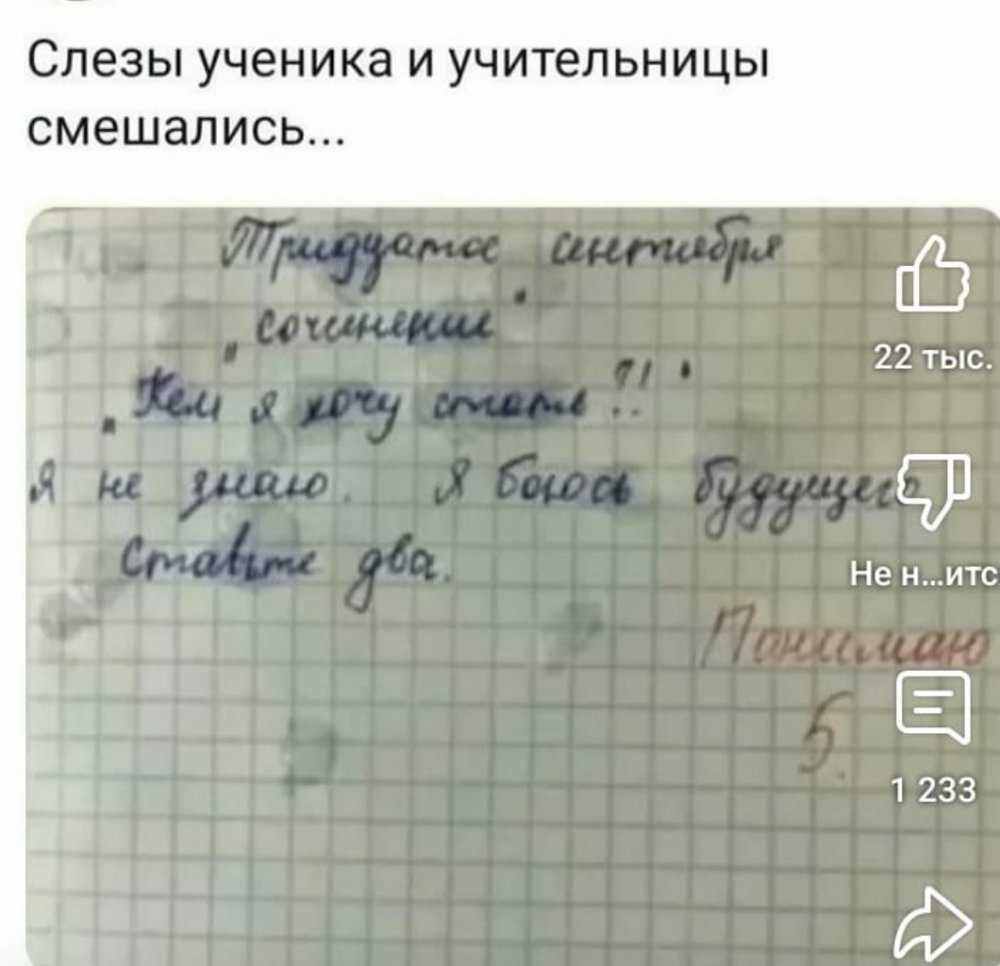 Слезы ученика и учительницы
смешались...
Тридцатое сентября
„Сочинение"
„Кем я хочу стать?!"
22 тыс.
Я не знаю. Я боюсь будущего
Ставьте два.
Не н...итс
Понимаю
5.
1 233